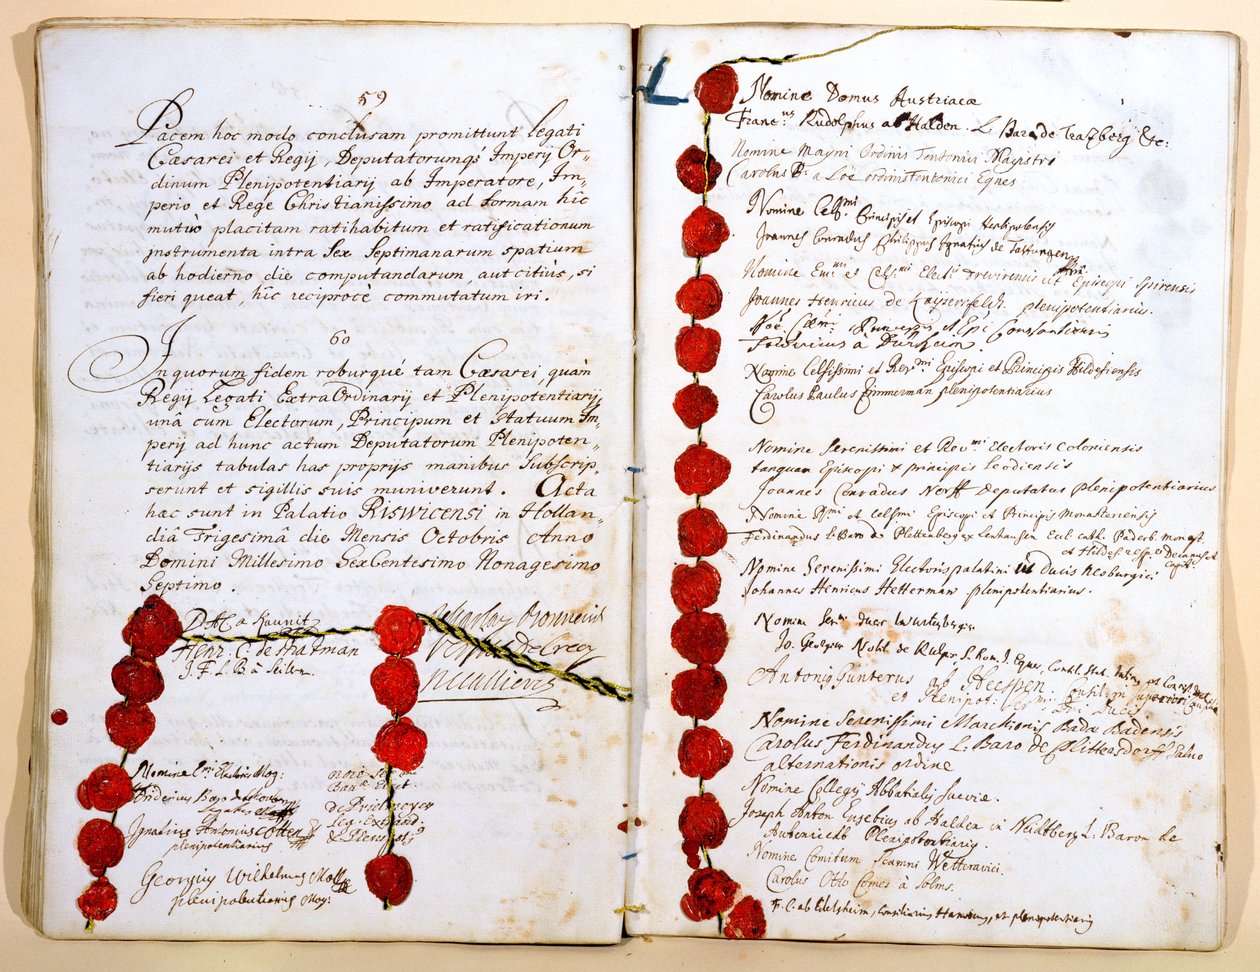 59
Pacem hoc modo conclusam promittunt Legati
Cæsarei et Regij, Deputatorumq; Imperij Or-
dinum Plenipotentiarij ab Imperatore, Im-
perio et Rege Christianissimo ad formam hic
mutuò placitam ratihabitum et ratificationum
instrumenta intra Sex Septimanarum spatium
ab hodierno die computandarum, aut citiùs, si
fieri queat, hîc reciprocè commutatum iri.
60
In quorum fidem roburqué tam Cæsarei, quàm
Regij Legati ExtraOrdinarij et Plenipotentiarij,
unâ cum Electorum, Principum et Statuum Im-
perij ad hunc actum Deputatorum Plenipoten-
tiarijs tabulas has proprijs manibus Subscrip
serunt et sigillis suis muniverunt. Acta
hæc sunt in Palatio RISWICENSI in Hollan-
diâ Trigesimâ die Mensis Octobris Anno
Domini Millesimo SexCentesimo Nonagesimo
Septimo.
D. A. C. a Kaunitz
Henr. C. de Stratman
J. F. L. B. à Seilern
Harlay Bonneuil
Verjus de Crecy
De Callieres
Nomine Electoris Mog:
plenipotentiarius
Ignatius Antonius Otten
plenipotentiarius
Georgius Wilhelmus Moll
plenipotentiarius Mog:
de Prielmeyer
Leg. Extraord.
& Plenipot.
Nomine Domus Austriacæ
Franc.us Rudolphus ab Halden. L. Baro de Trazberg &c:
Nomine Magni Ordinis Teutonici Magistri
Carolus B. a Loë ordinis Teutonici Eques
Nomine Cels.mi Principis et Episcopi Herbipolensis
Joannes Conradus Philippus Ignatius de Tastungen
Nomine Em.mi et Cels.mi Elect. Trevirensis ut Episcopi Spirensis
Joannes Henricus de Kaysersfeldt. plenipotentiarius.
Principis et Epi Constantiensis
Fridericus à Durheim.
Nomine Celsissimi et Rev.mi Episcopi et Principis Hildesiensis
Carolus Paulus Zimmerman plenipotentiarius
Nomine Serenissimi et Rev.mi Electoris Coloniensis
tanquam Episcopi & principis Leodiensis
Joannes Conradus Norff Deputatus plenipotentiarius
Nomine R.mi et Celsmi Episcopi et Principis Monasteriensis
Ferdinandus L. Baro de Plettenberg ex Lenhausen Eccl. Cath. Paderb. Monast
et Hildes. resp.e Decanus et
Capit.
Nomine Serenissimi Electoris palatini ut Ducis Neoburgici
Johannes Henricus Hetterman plenipotentiarius.
Nomine Ser.mi Ducis Wurtenberg.
Jo. Georgius Nobil. de Kulpis, S. Rom. J. Eques, Consil.
Antonius Gunterus de Heespen
et Plenipot. Ser.mi Dni Ducis
Nomine Serenissimi Marchionis Bada Badensis
Carolus Ferdinandus L. Baro de Plittersdorff Salvo
alternationis ordine
Nomine Collegij Abbatialis Sueviæ.
Joseph Anton Eusebius ab Halden in Neidtberg L. Baron de
Autenriedt Plenipotentiarius.
Nomine Comitum Scamni Wetteravici
Carolus Otto Comes à Solms.
F. C. ab Edelsheim, Consiliarius Hanovius, et plenipotentiarius